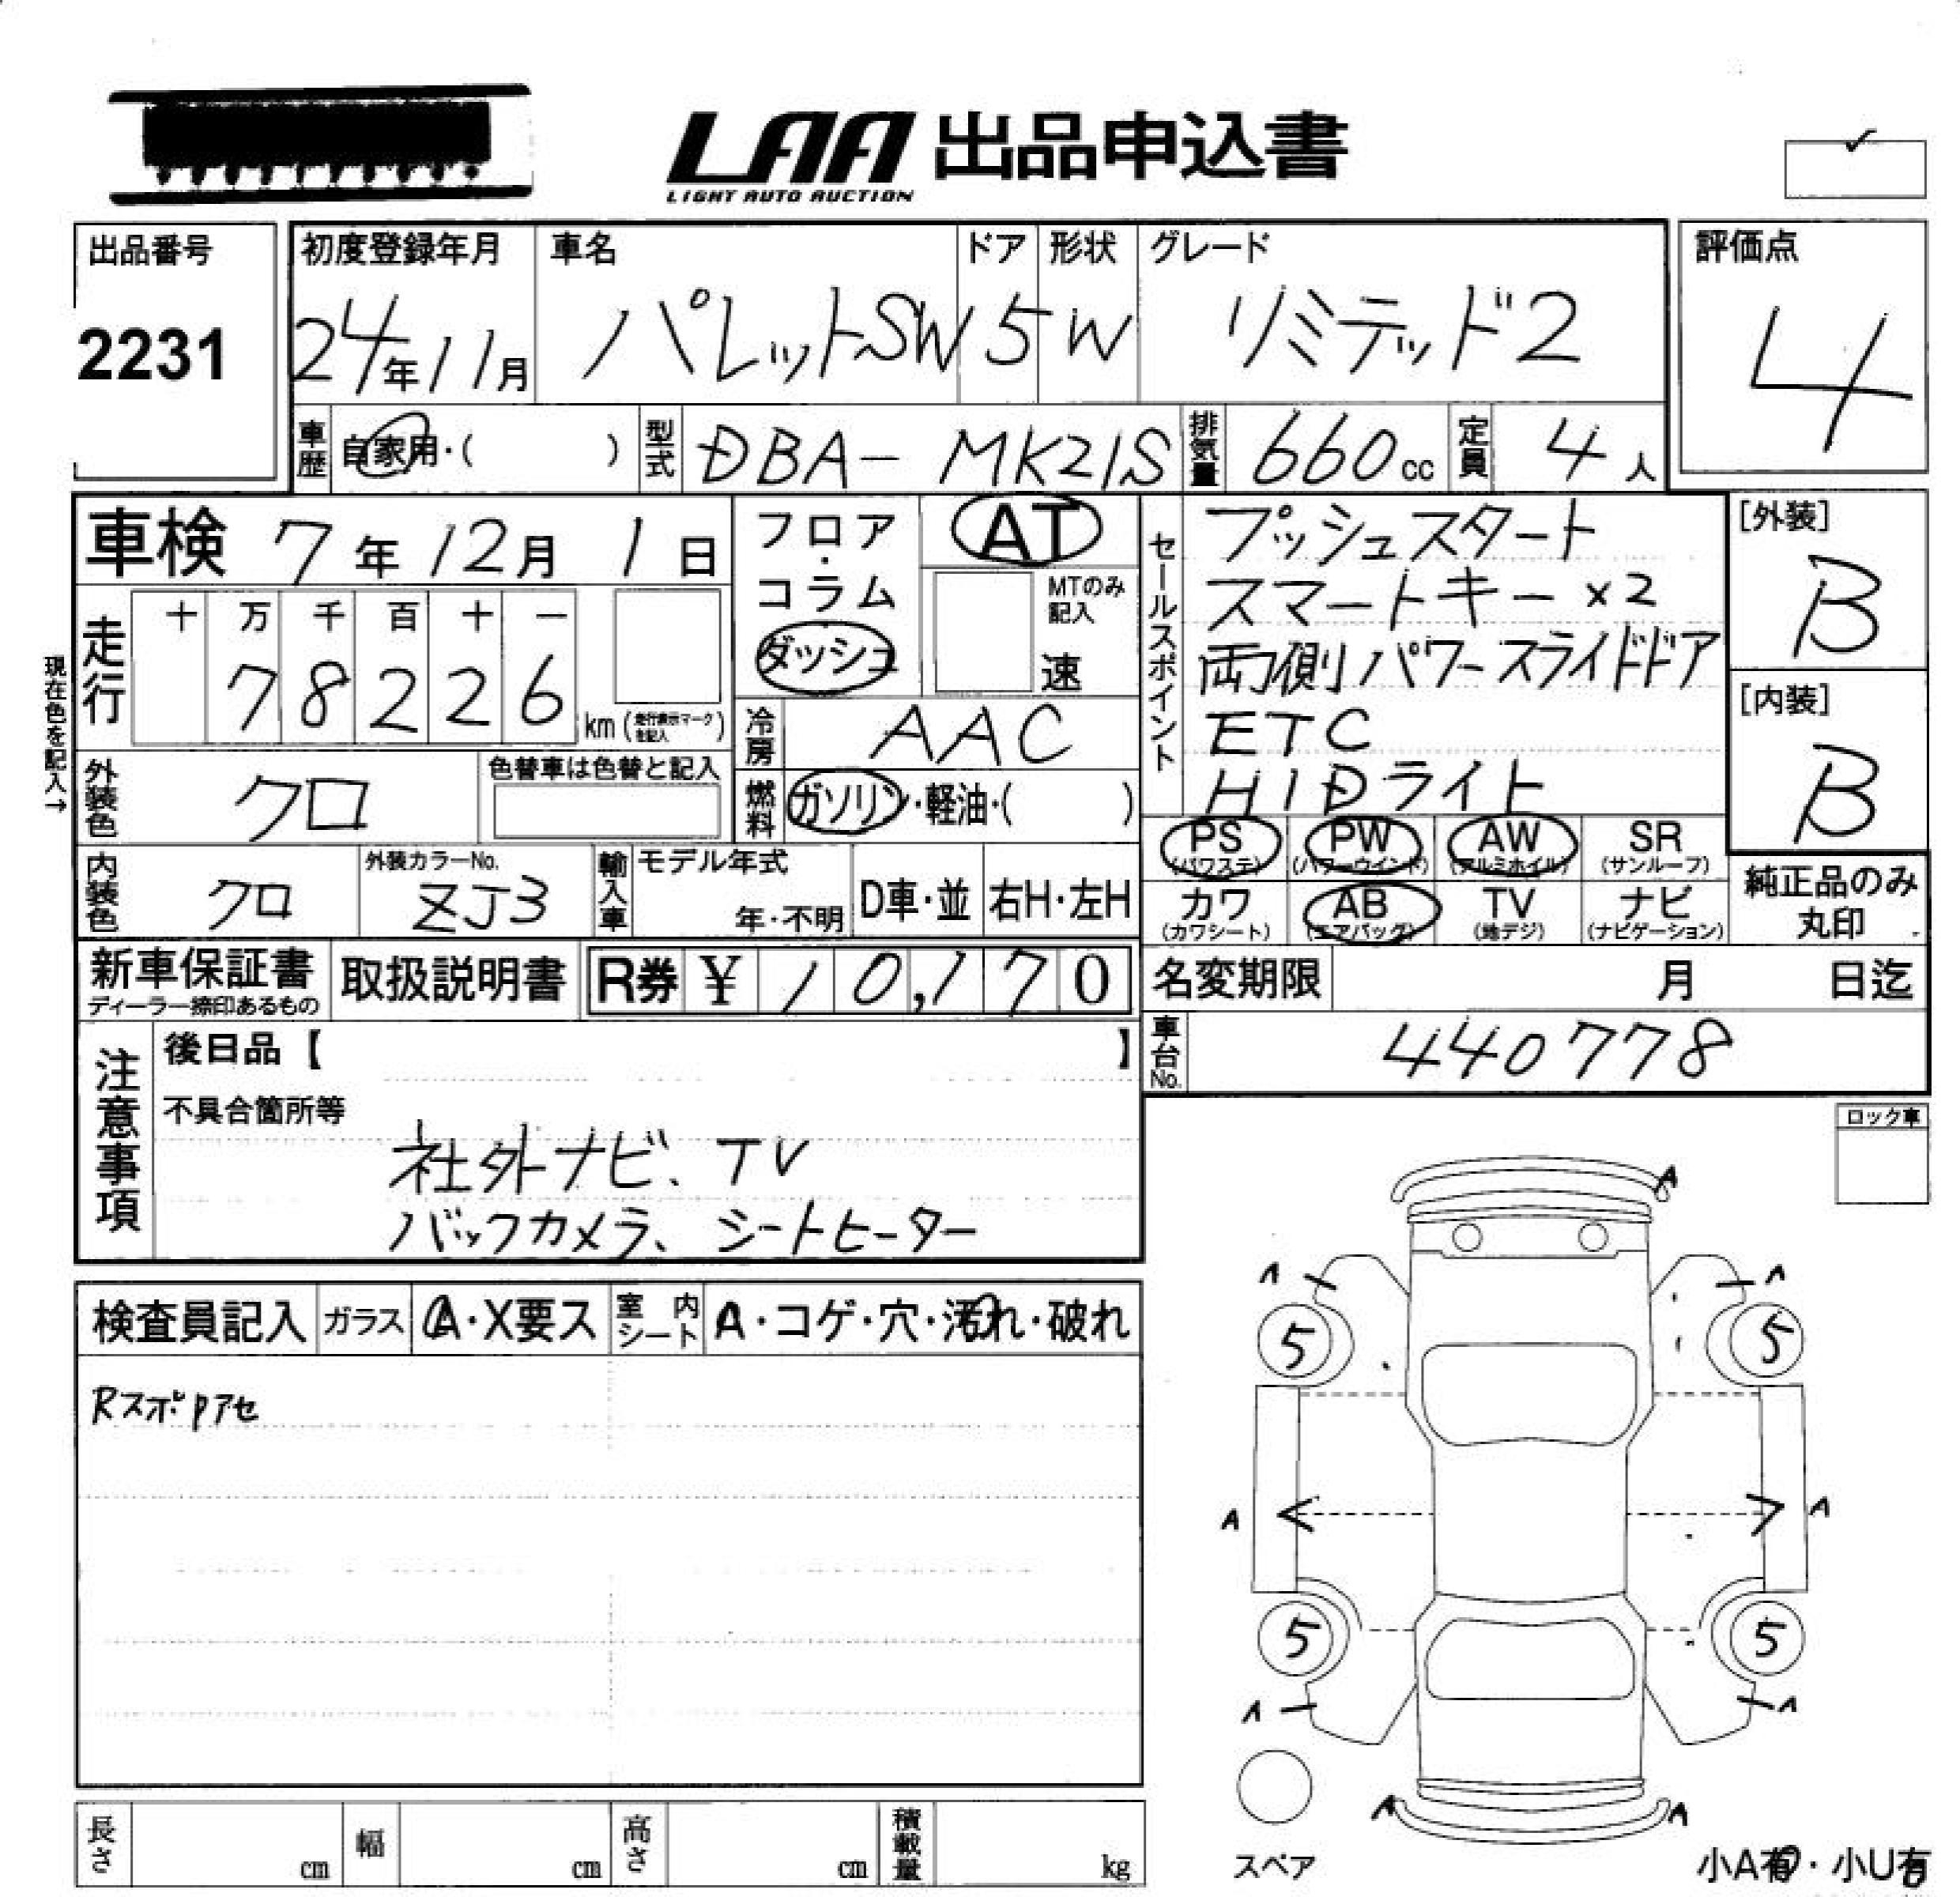 LAA 出品申込書
LIGHT AUTO AUCTION
出品番号
2231
初度登録年月
24年11月
車名
パレットSW
ドア
5
形状
W
グレード
リミテッド2
評価点
4
車歴 自家用・( )
型式 DBA- MK21S
排気量 660cc
定員 4人
車検 7年12月1日
フロア・コラム
ダッシュ
AT
MTのみ記入
速
セールスポイント
プッシュスタート
スマートキー×2
両側パワースライドドア
ETC
HIDライト
[外装]
B
[内装]
B
現在色を記入→
走行
十 万 千 百 十 一
7 8 2 2 6 km (走行表示マークを記入)
冷房 AAC
外装色 クロ
色替車は色替と記入
燃料 ガソリン・軽油・( )
内装色 クロ
外装カラーNo.
ZJ3
輸入車 モデル年式
年・不明
D車・並 右H・左H
PS (パワステ)
PW (パワーウインド)
AW (アルミホイル)
SR (サンルーフ)
カワ (カワシート)
AB (エアバッグ)
TV (地デジ)
ナビ (ナビゲーション)
純正品のみ
丸印
新車保証書
ディーラー捺印あるもの
取扱説明書
R券 ¥ 10,170
名変期限 月 日迄
車台No. 440778
注意事項
後日品【 】
不具合箇所等
社外ナビ、TV
バックカメラ、シートヒーター
ロック車
検査員記入 ガラス A・X要ス
室内シート A・コゲ・穴・汚れ・破れ
RスポPアセ
A
A A
5 5
A A
5 5
A A
A A
スペア
小A有・小U有
長さ cm
幅 cm
高さ cm
積載量 kg